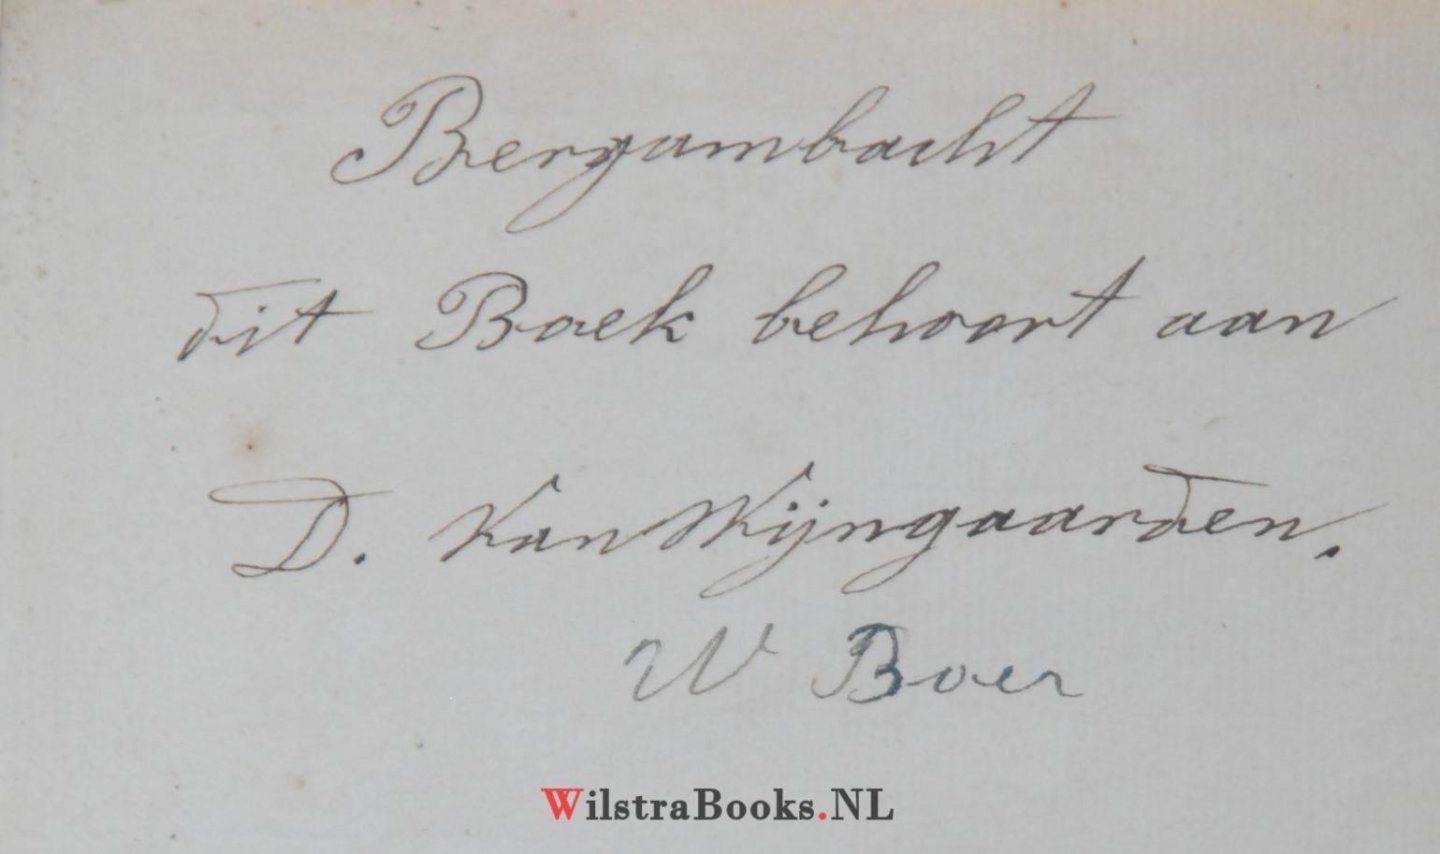 Bergambacht
dit Boek behoort aan
D. Van Wijngaarden.
W Boer
WilstraBooks.NL